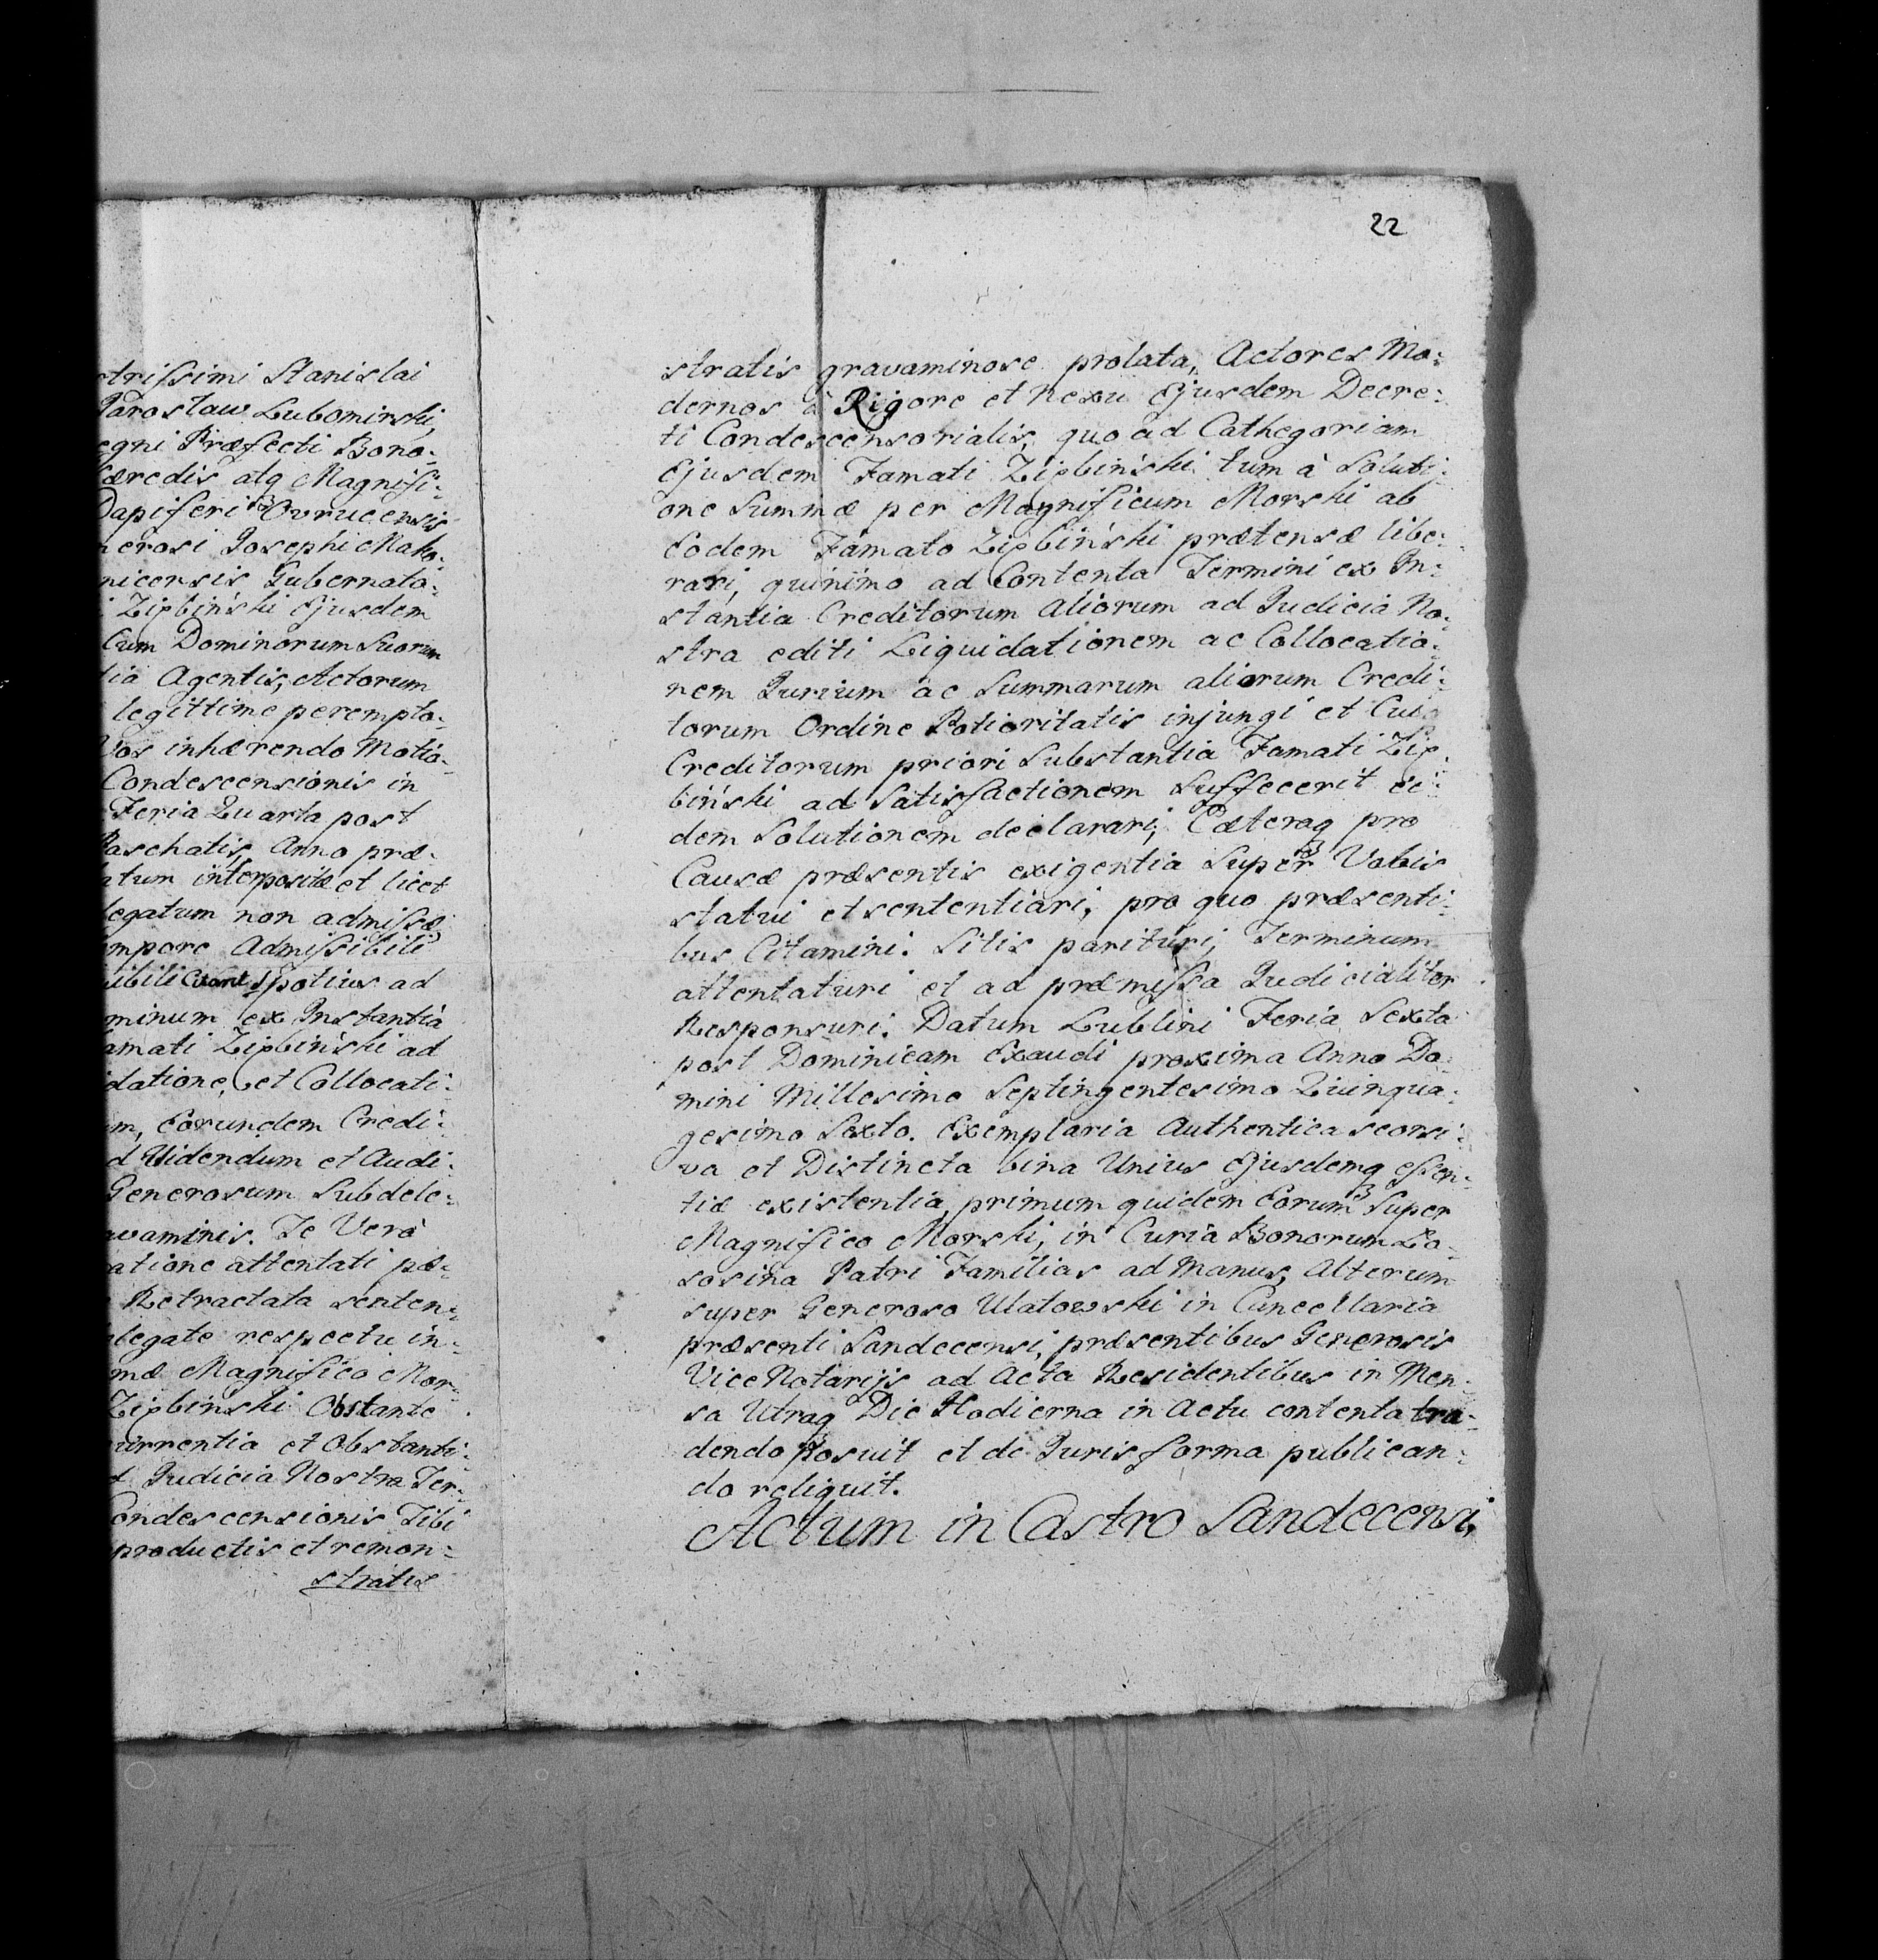 strissimi Stanislai
Jarosław Lubomirski,
egni Præfecti Bono:
æredis atq Magnifi:
Dapiferi Ovrucensis
nerosi Josephi Mako:
nicensis Gubernato:
Ziębiński Ejusdem
Cum Dominorum Suorum
tia Agentis, Actorum
legittime perempto:
Vos inhærendo Motio:
Condescensionis in
Feria Quarta post
Paschatis Anno præ:
atum interpositæ et licet
legatum non admissæ
mpore Admissibili
uibili Citant potius ad
minum ex Instantia
amati Ziębiński ad
idatione, et Collocati:
m, Eorundem Credi:
d Videndum et Audi:
Generosum Subdele:
avaminis. Te Vero
atione attentati præ:
Retractata senten:
legate respectu in:
mæ Magnifico Mor:
Ziębiński Obstante
currentia et Obstanti:
t Judicia Nostra Ter:
Condescensionis Tibi
productis et remon:
stratis
22
stratis gravaminose prolata, Actores Mo:
dernos à Rigore et Nexu Ejusdem Decre:
ti Condescensorialis, quo ad Cathegoriam
Ejusdem Famati Ziębiński tum à Soluti:
one Summæ per Magnificum Morski ab
Eodem Famato Ziębiński prætensæ libe:
rari, quinimo ad Contenta Termini ex In:
stantia Creditorum aliorum ad Judicia No:
stra editi Liquidationem ac Collocatio:
nem Jurium ac Summarum aliorum Credi:
torum Ordine Potioritatis injungi et Cui
Creditorum priori Substantia Famati Zię
biński ad Satisfactionem Suffecerit ei:
dem Solutionem declarari; Cæteraq pro
Causæ præsentis exigentia Super Vobis
statui et sententiari, pro quo præsenti:
bus Citamini. Sitis parituri, Terminum
attentaturi et ad præmissa Judicialiter
Responsuri. Datum Lublini Feria Sexta
post Dominicam Exaudi proxima Anno Do
mini Millesimo Septingentesimo Quinqua:
gesimo Sexto. Exemplaria Authentica seorsi:
va et Distincta bina Unius Ejusdemq essen:
tiæ existentia, primum quidem Eorum Super
Magnifico Morski, in Curia Bonorum Ło
sosina Patri Familias ad Manus, Alterum
super Generoso Ulatowski in Cancellaria
præsenti Sandecensi, præsentibus Generosis
Vice Notarijs ad Acta Residentibus in Men
sa Utraq Die Hodierna in Actu contenta tra:
dendo posuit et de Juris forma publican:
do reliquit.
Actum in Castro Sandecensi,